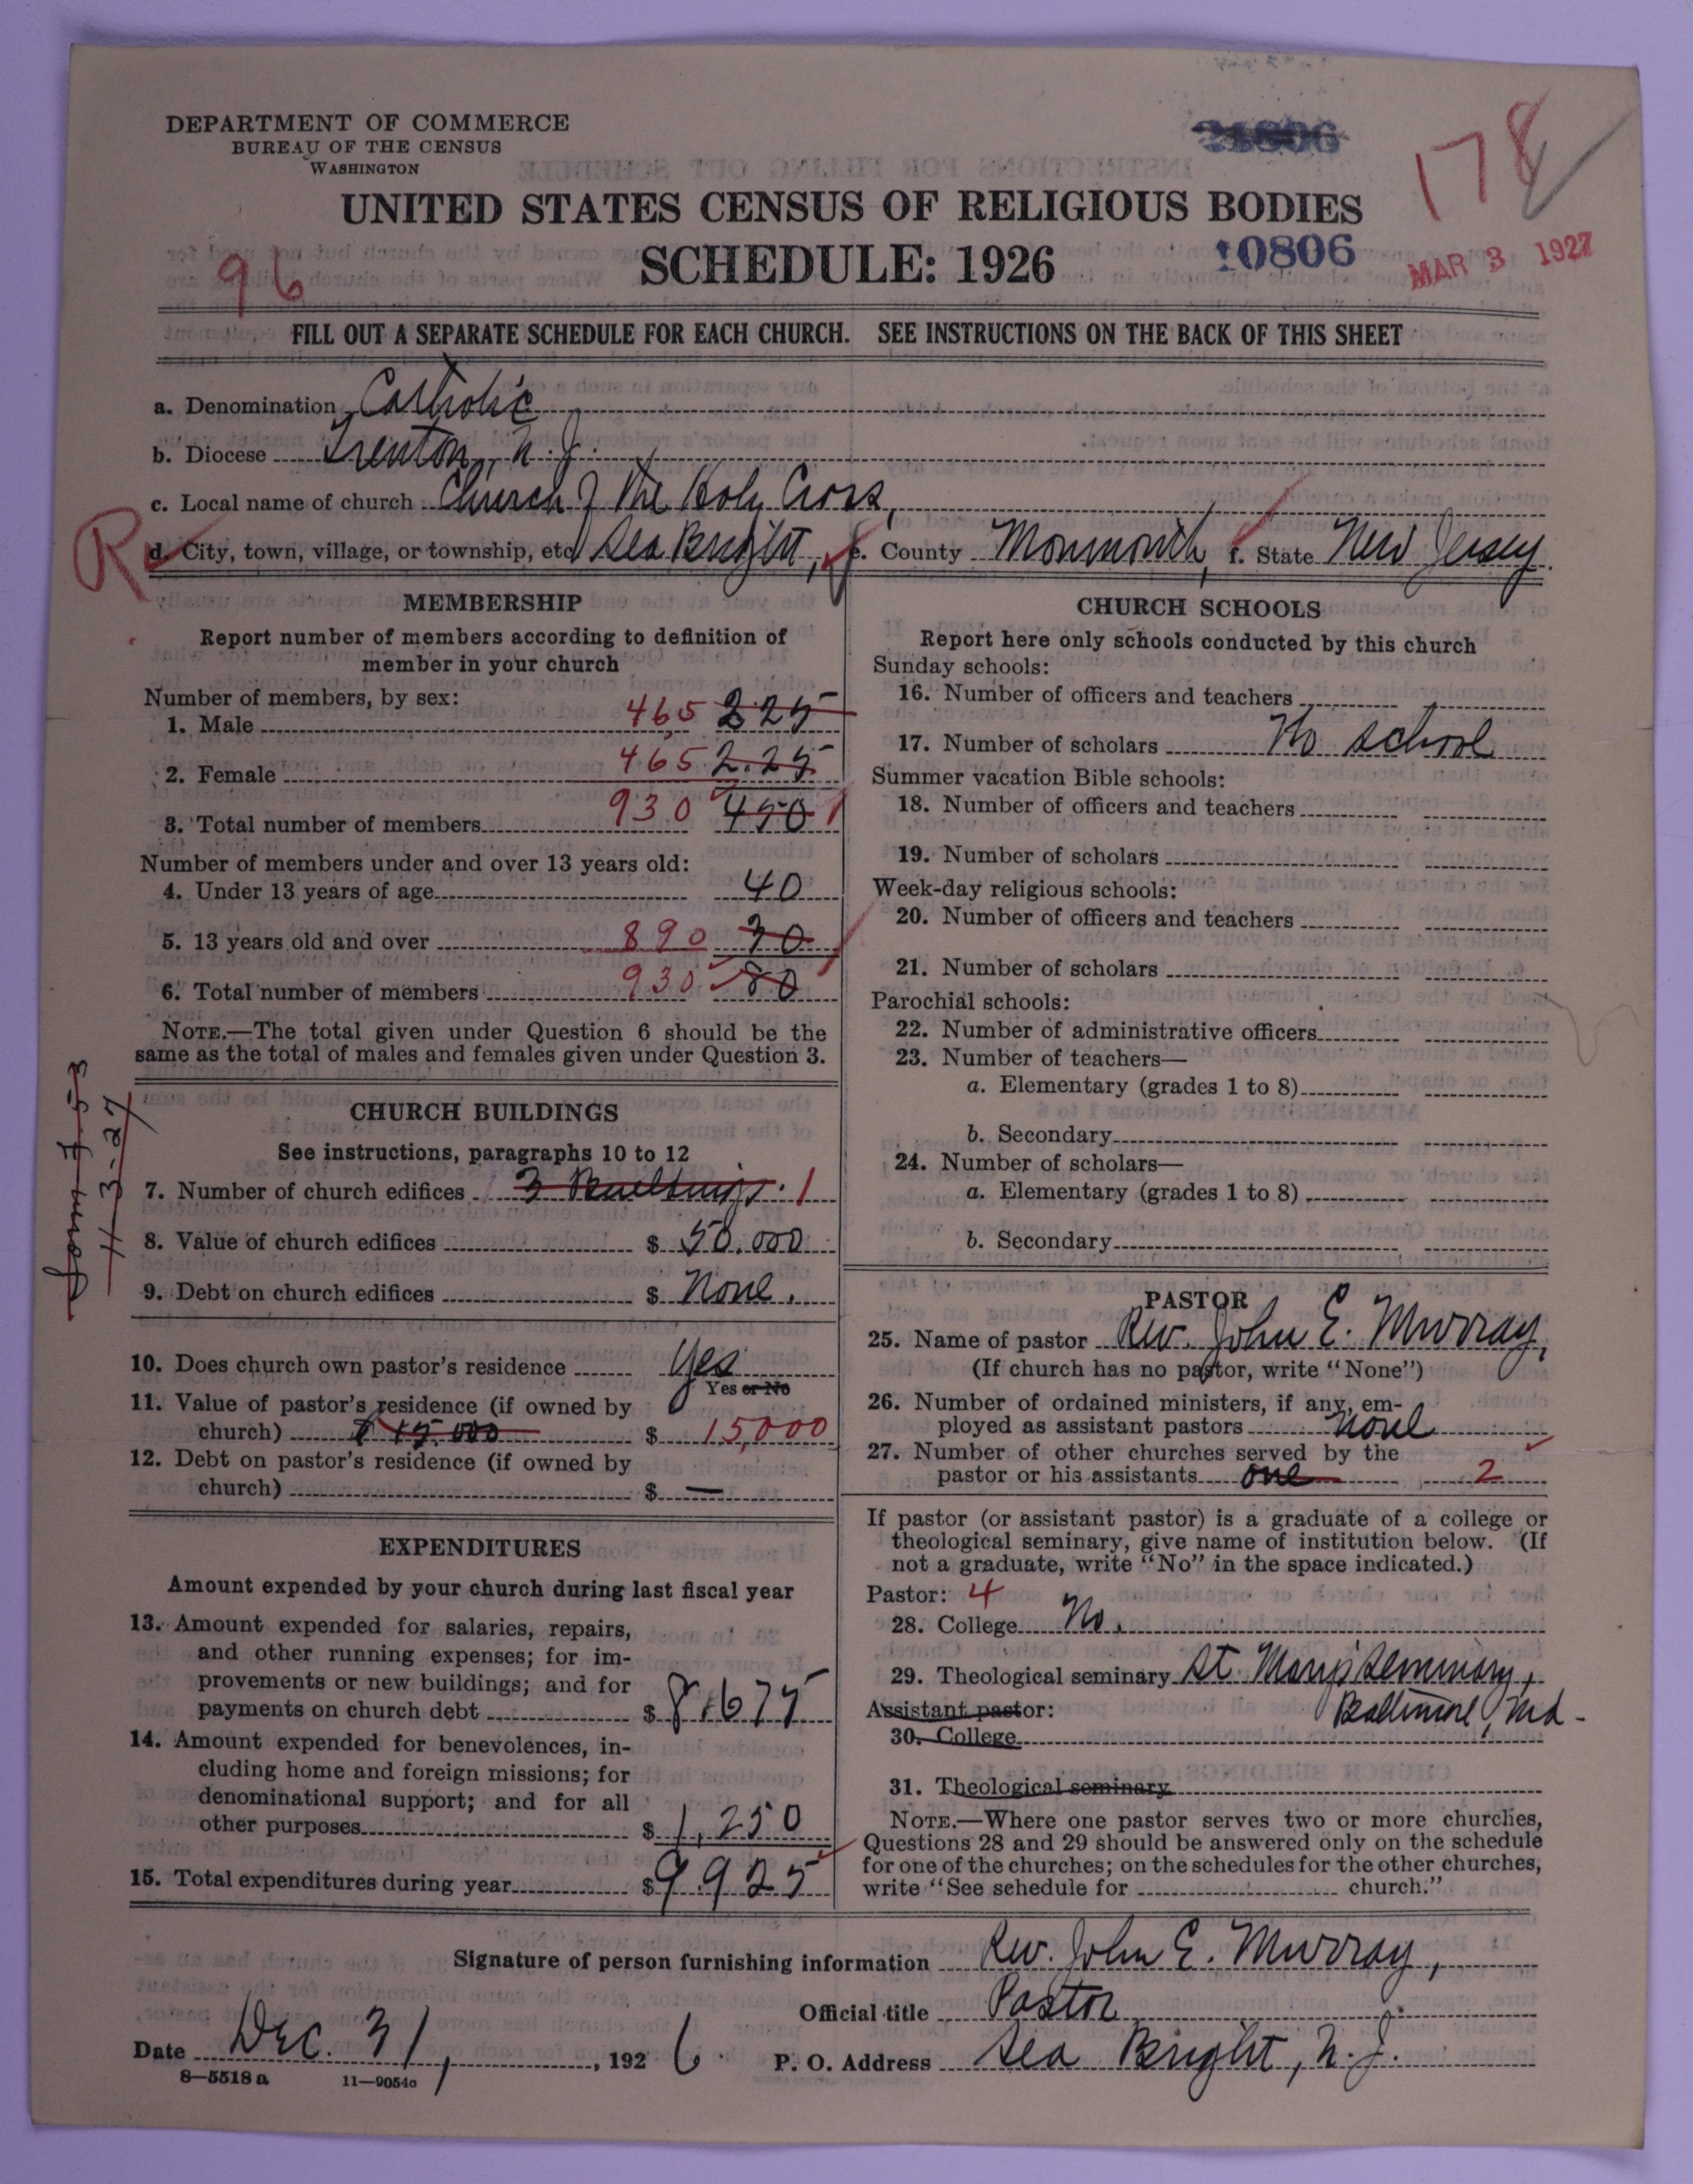 DEPARTMENT OF COMMERCE
BUREAU OF THE CENSUS
WASHINGTON
178
UNITED STATES CENSUS OF RELIGIOUS BODIES
SCHEDULE: 1926
10806
MAR 3 1927
96
FILL OUT A SEPARATE SCHEDULE FOR EACH CHURCH. SEE INSTRUCTIONS ON THE BACK OF THIS SHEET
a. Denomination Catholic
b. Diocese Trenton, N. J.
c. Local name of church Church of the Holy Cross,
d. City, town, village, or township, etc. Sea Bright, e. County Monmouth, f. State New Jersey.
MEMBERSHIP
Report number of members according to definition of
member in your church
Number of members, by sex:
1. Male 465 225
2. Female 465 225
3. Total number of members 930 450
Number of members under and over 13 years old:
4. Under 13 years of age 40
5. 13 years old and over 890
6. Total number of members 930 80
NOTE.—The total given under Question 6 should be the
same as the total of males and females given under Question 3.
CHURCH BUILDINGS
See instructions, paragraphs 10 to 12
7. Number of church edifices 3 Buildings. 1
8. Value of church edifices $ 50.000
9. Debt on church edifices $ None.
10. Does church own pastor's residence Yes
Yes or No
11. Value of pastor's residence (if owned by
church) $ 15.000 $ 15,000
12. Debt on pastor's residence (if owned by
church) $ —
EXPENDITURES
Amount expended by your church during last fiscal year
13. Amount expended for salaries, repairs,
and other running expenses; for im-
provements or new buildings; and for
payments on church debt $ 8,675
14. Amount expended for benevolences, in-
cluding home and foreign missions; for
denominational support; and for all
other purposes $ 1,250
15. Total expenditures during year $ 9925
CHURCH SCHOOLS
Report here only schools conducted by this church
Sunday schools:
16. Number of officers and teachers
17. Number of scholars No school
Summer vacation Bible schools:
18. Number of officers and teachers
19. Number of scholars
Week-day religious schools:
20. Number of officers and teachers
21. Number of scholars
Parochial schools:
22. Number of administrative officers
23. Number of teachers—
a. Elementary (grades 1 to 8)
b. Secondary
24. Number of scholars—
a. Elementary (grades 1 to 8)
b. Secondary
PASTOR
25. Name of pastor Rev. John E. Murray,
(If church has no pastor, write "None")
26. Number of ordained ministers, if any, em-
ployed as assistant pastors none
27. Number of other churches served by the
pastor or his assistants one 2
If pastor (or assistant pastor) is a graduate of a college or
theological seminary, give name of institution below. (If
not a graduate, write "No" in the space indicated.)
Pastor: 4
28. College No.
29. Theological seminary St. Mary's Seminary,
Baltimore, Md.
Assistant pastor:
30. College
31. Theological seminary
NOTE.—Where one pastor serves two or more churches,
Questions 28 and 29 should be answered only on the schedule
for one of the churches; on the schedules for the other churches,
write "See schedule for church."
Signature of person furnishing information Rev. John E. Murray,
Official title Pastor
Date Dec. 31, 1926. P. O. Address Sea Bright, N. J.
8—5518a 11—9054a